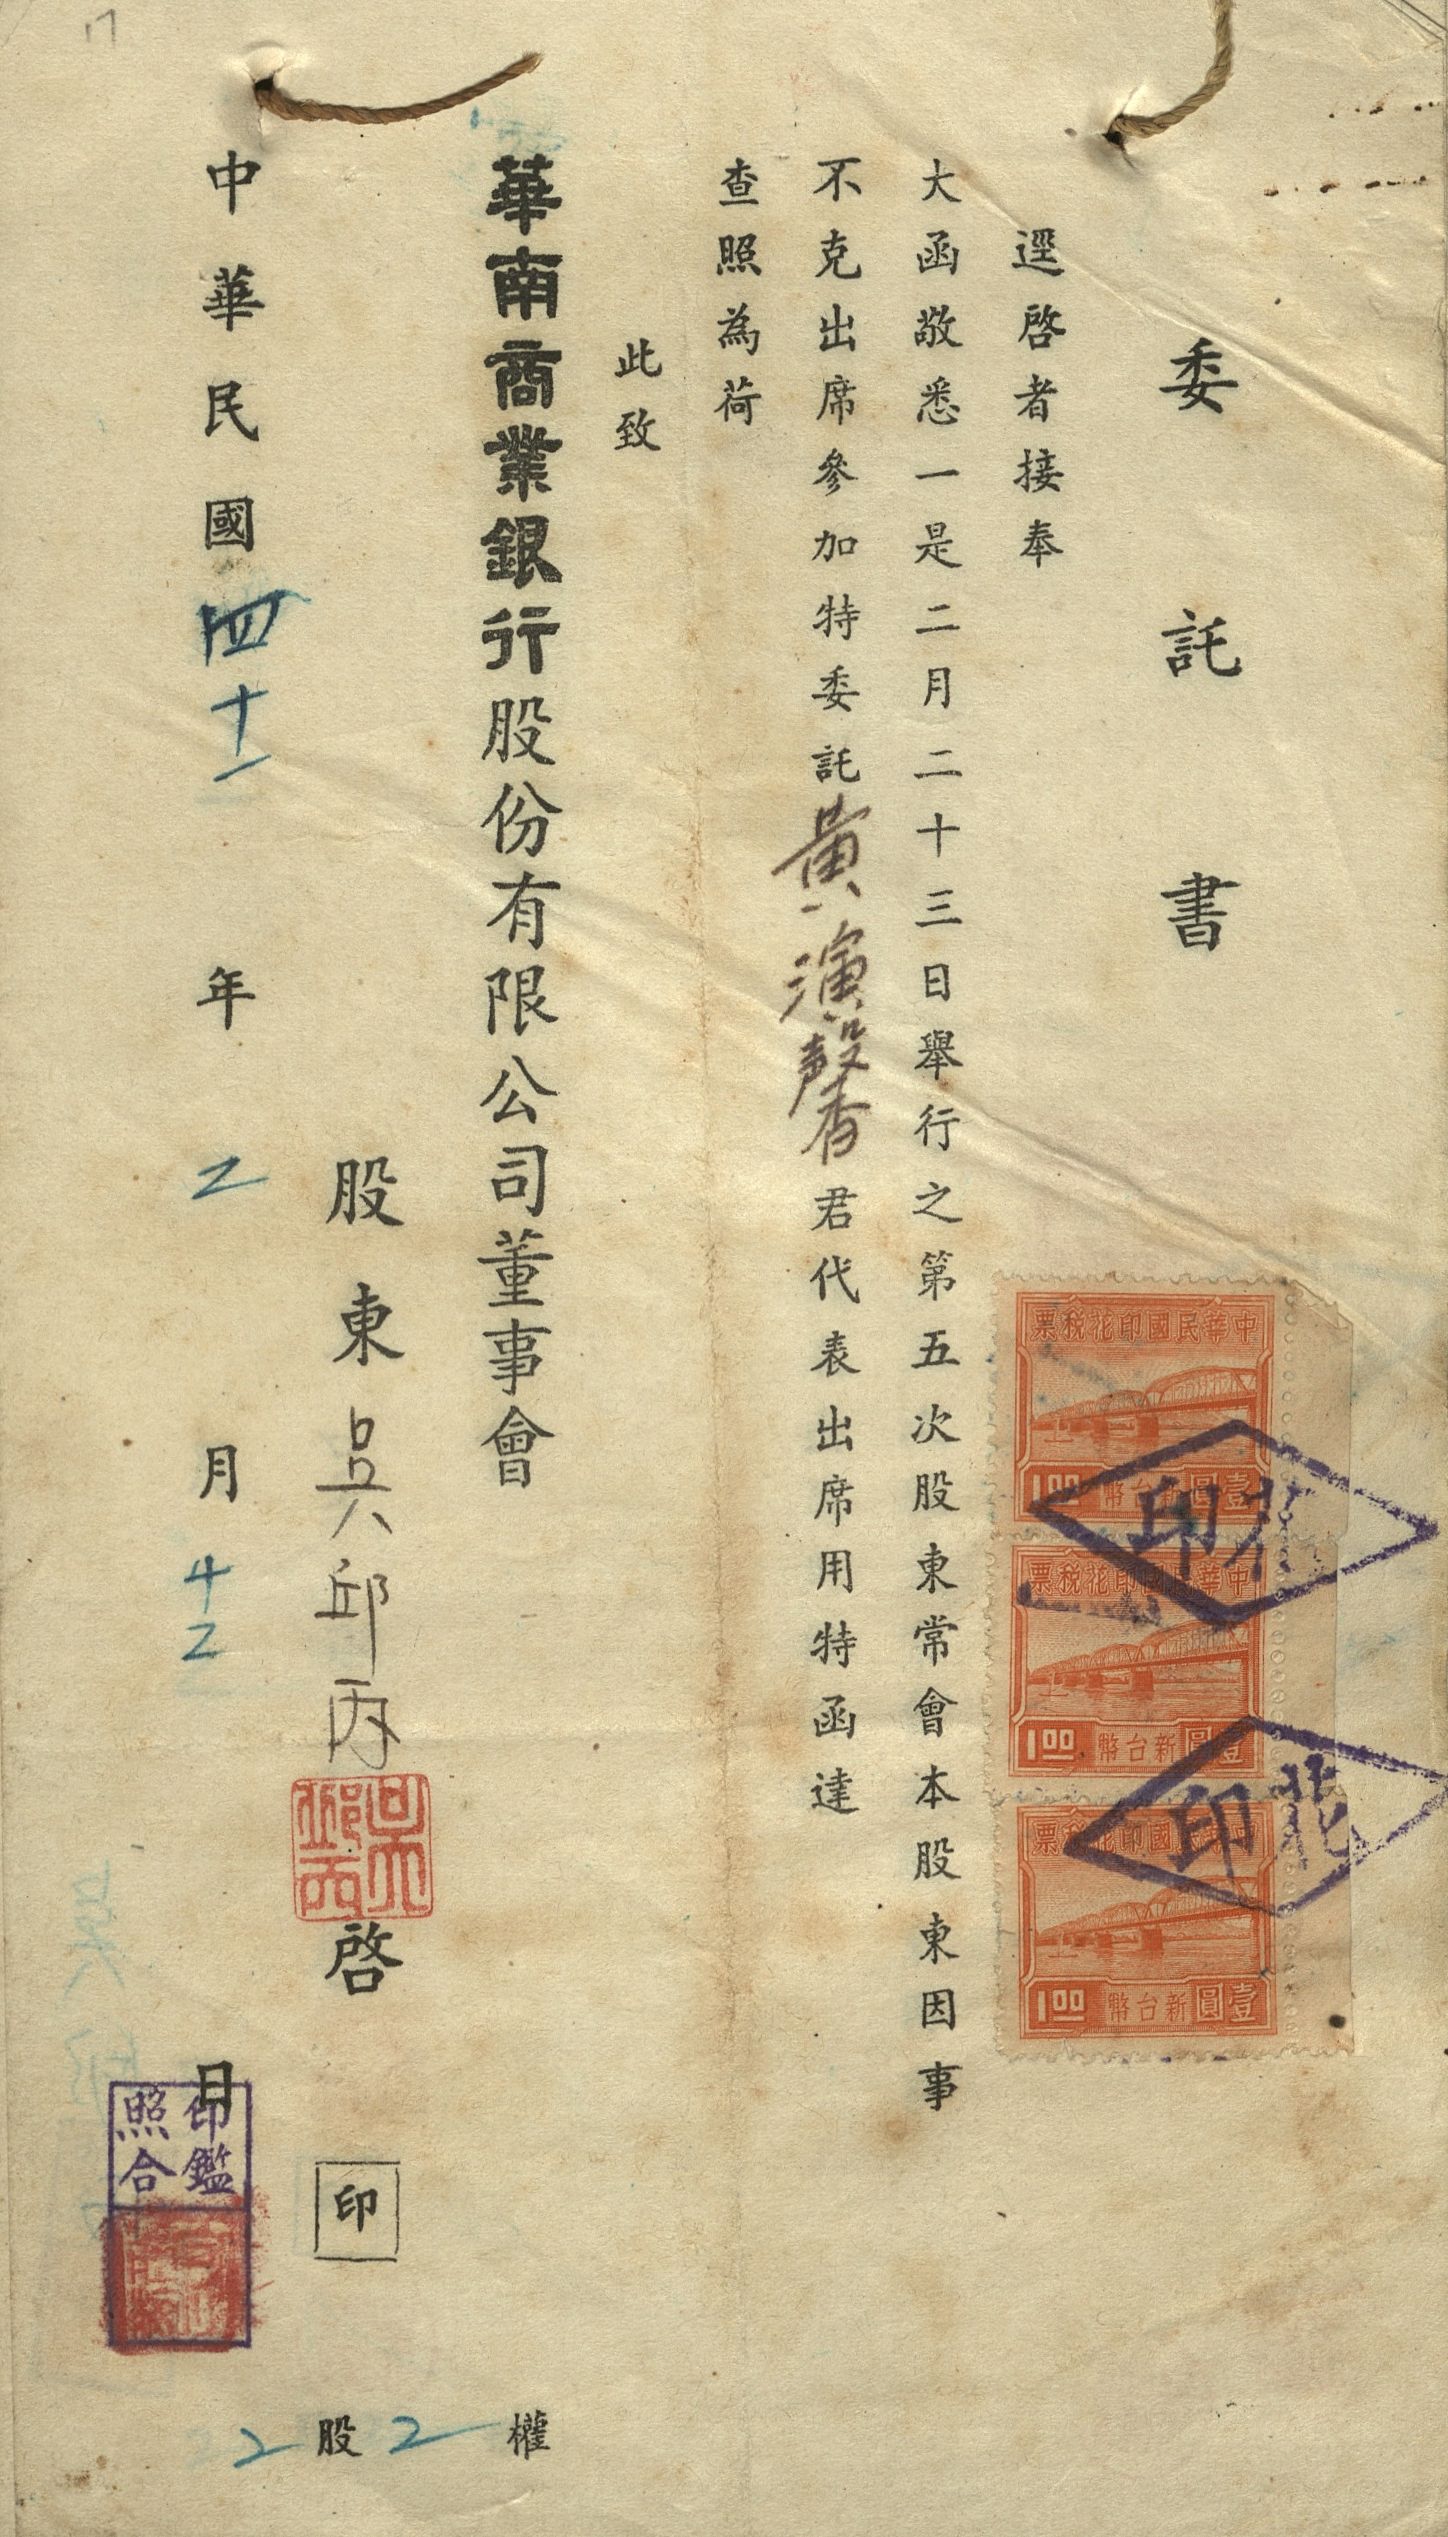 委託書
逕啓者接奉
大函敬悉一是二月二十三日舉行之第五次股東常會本股東因事
不克出席參加特委託黃演馨君代表出席用特函達
查照為荷
此致
華南商業銀行股份有限公司董事會
股東吳邱丙啓 印
吳邱丙
中華民國四十一年2月十2日
權2股2
印鑑照合
票稅花印國民華中
1.00 幣台新圓壹
票稅花印國民華中
1.00 幣台新圓壹
票稅花印國民華中
1.00 幣台新圓壹
印花
印花
17